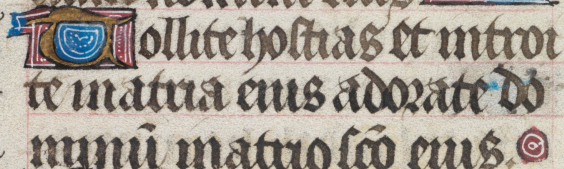 Tollite hostias et introi
te in atria eius adorate do
minū in atrio scō eius.